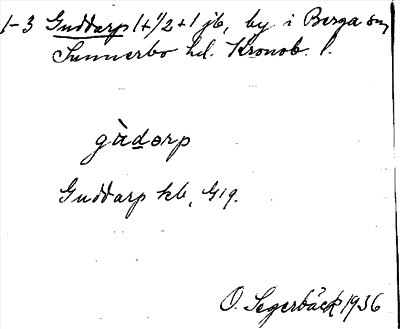 1-3 Guddarp 1+1/2+1 jb, by i Berga sn,
Sunnerbo hd. Kronob. l.
gùdarp
Guddarp kb, G19.
O. Segerbäck 1936